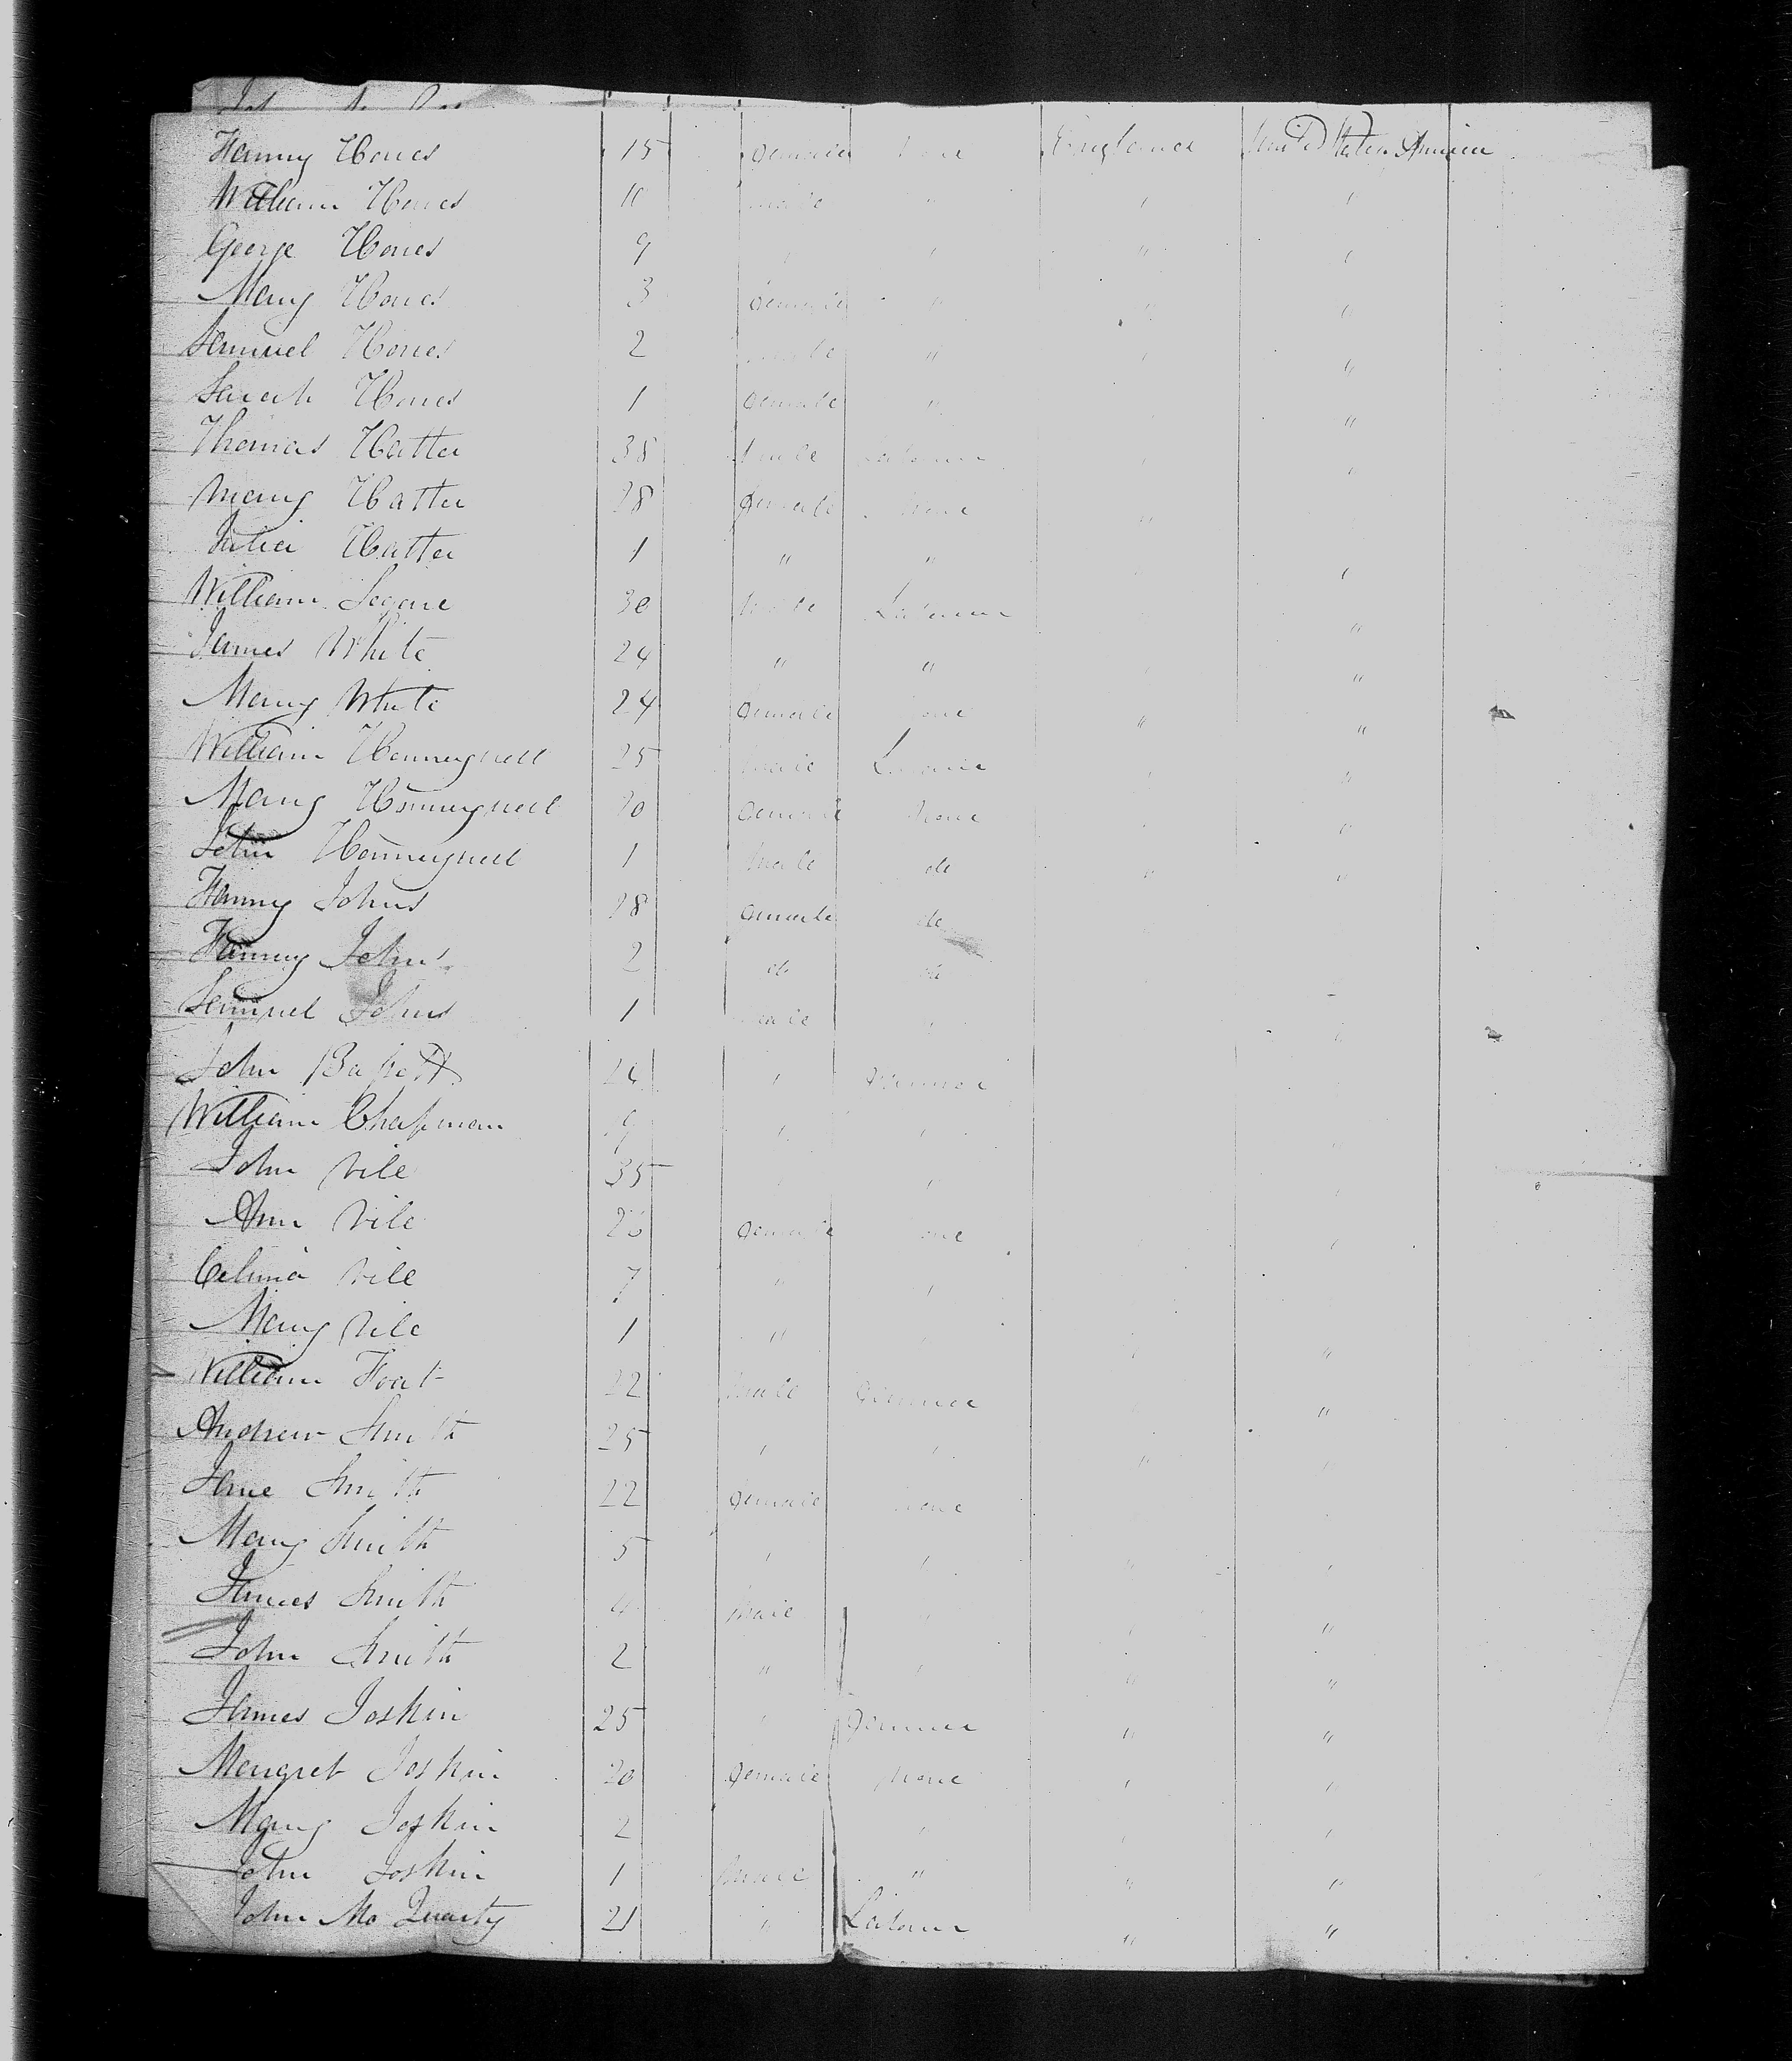 Fanny Hones 15 Female None England United States America
William Hones 11 male " " "
George Hones 9 " " " "
Mary Hones 3 Female " " "
Samuel Hones 2 male " " "
Sarah Hones 1 Female " " "
Thomas Hatter 38 Male Labourer " "
Mary Hatter 28 Female None "
Julia Hatter 1 " " "
William Segare 30 Male Labourer "
James White 24 " " "
Mary White 24 Female None " "
William Honneywell 25 Male Labourer " "
Mary Honneywell 20 Female None " "
John Honneywell 1 Male do " "
Fanny Johns 28 Female do
Fanny Johns 2 do do
Samuel Johns 1 male " "
John 24 " Farmer
William Chapman 19 " "
John Vile 35 " " "
Ann Vile 26 Female None " "
Celina Vile 7 " "
Mary Vile 1 " " " "
William Foat 22 Male Farmer " "
Andrew Smith 25 " " " "
Jane Smith 22 Female None "
Mary Smith 5 " " " "
James Smith 4 Male " " "
John Smith 2 " " " "
James Joskin 25 " Farmer " "
Margret Joskin 20 Female None " "
Mary Joskin 2 " " "
John Joskin 1 Male " " "
John Mc Quarty 21 " Labourer " "